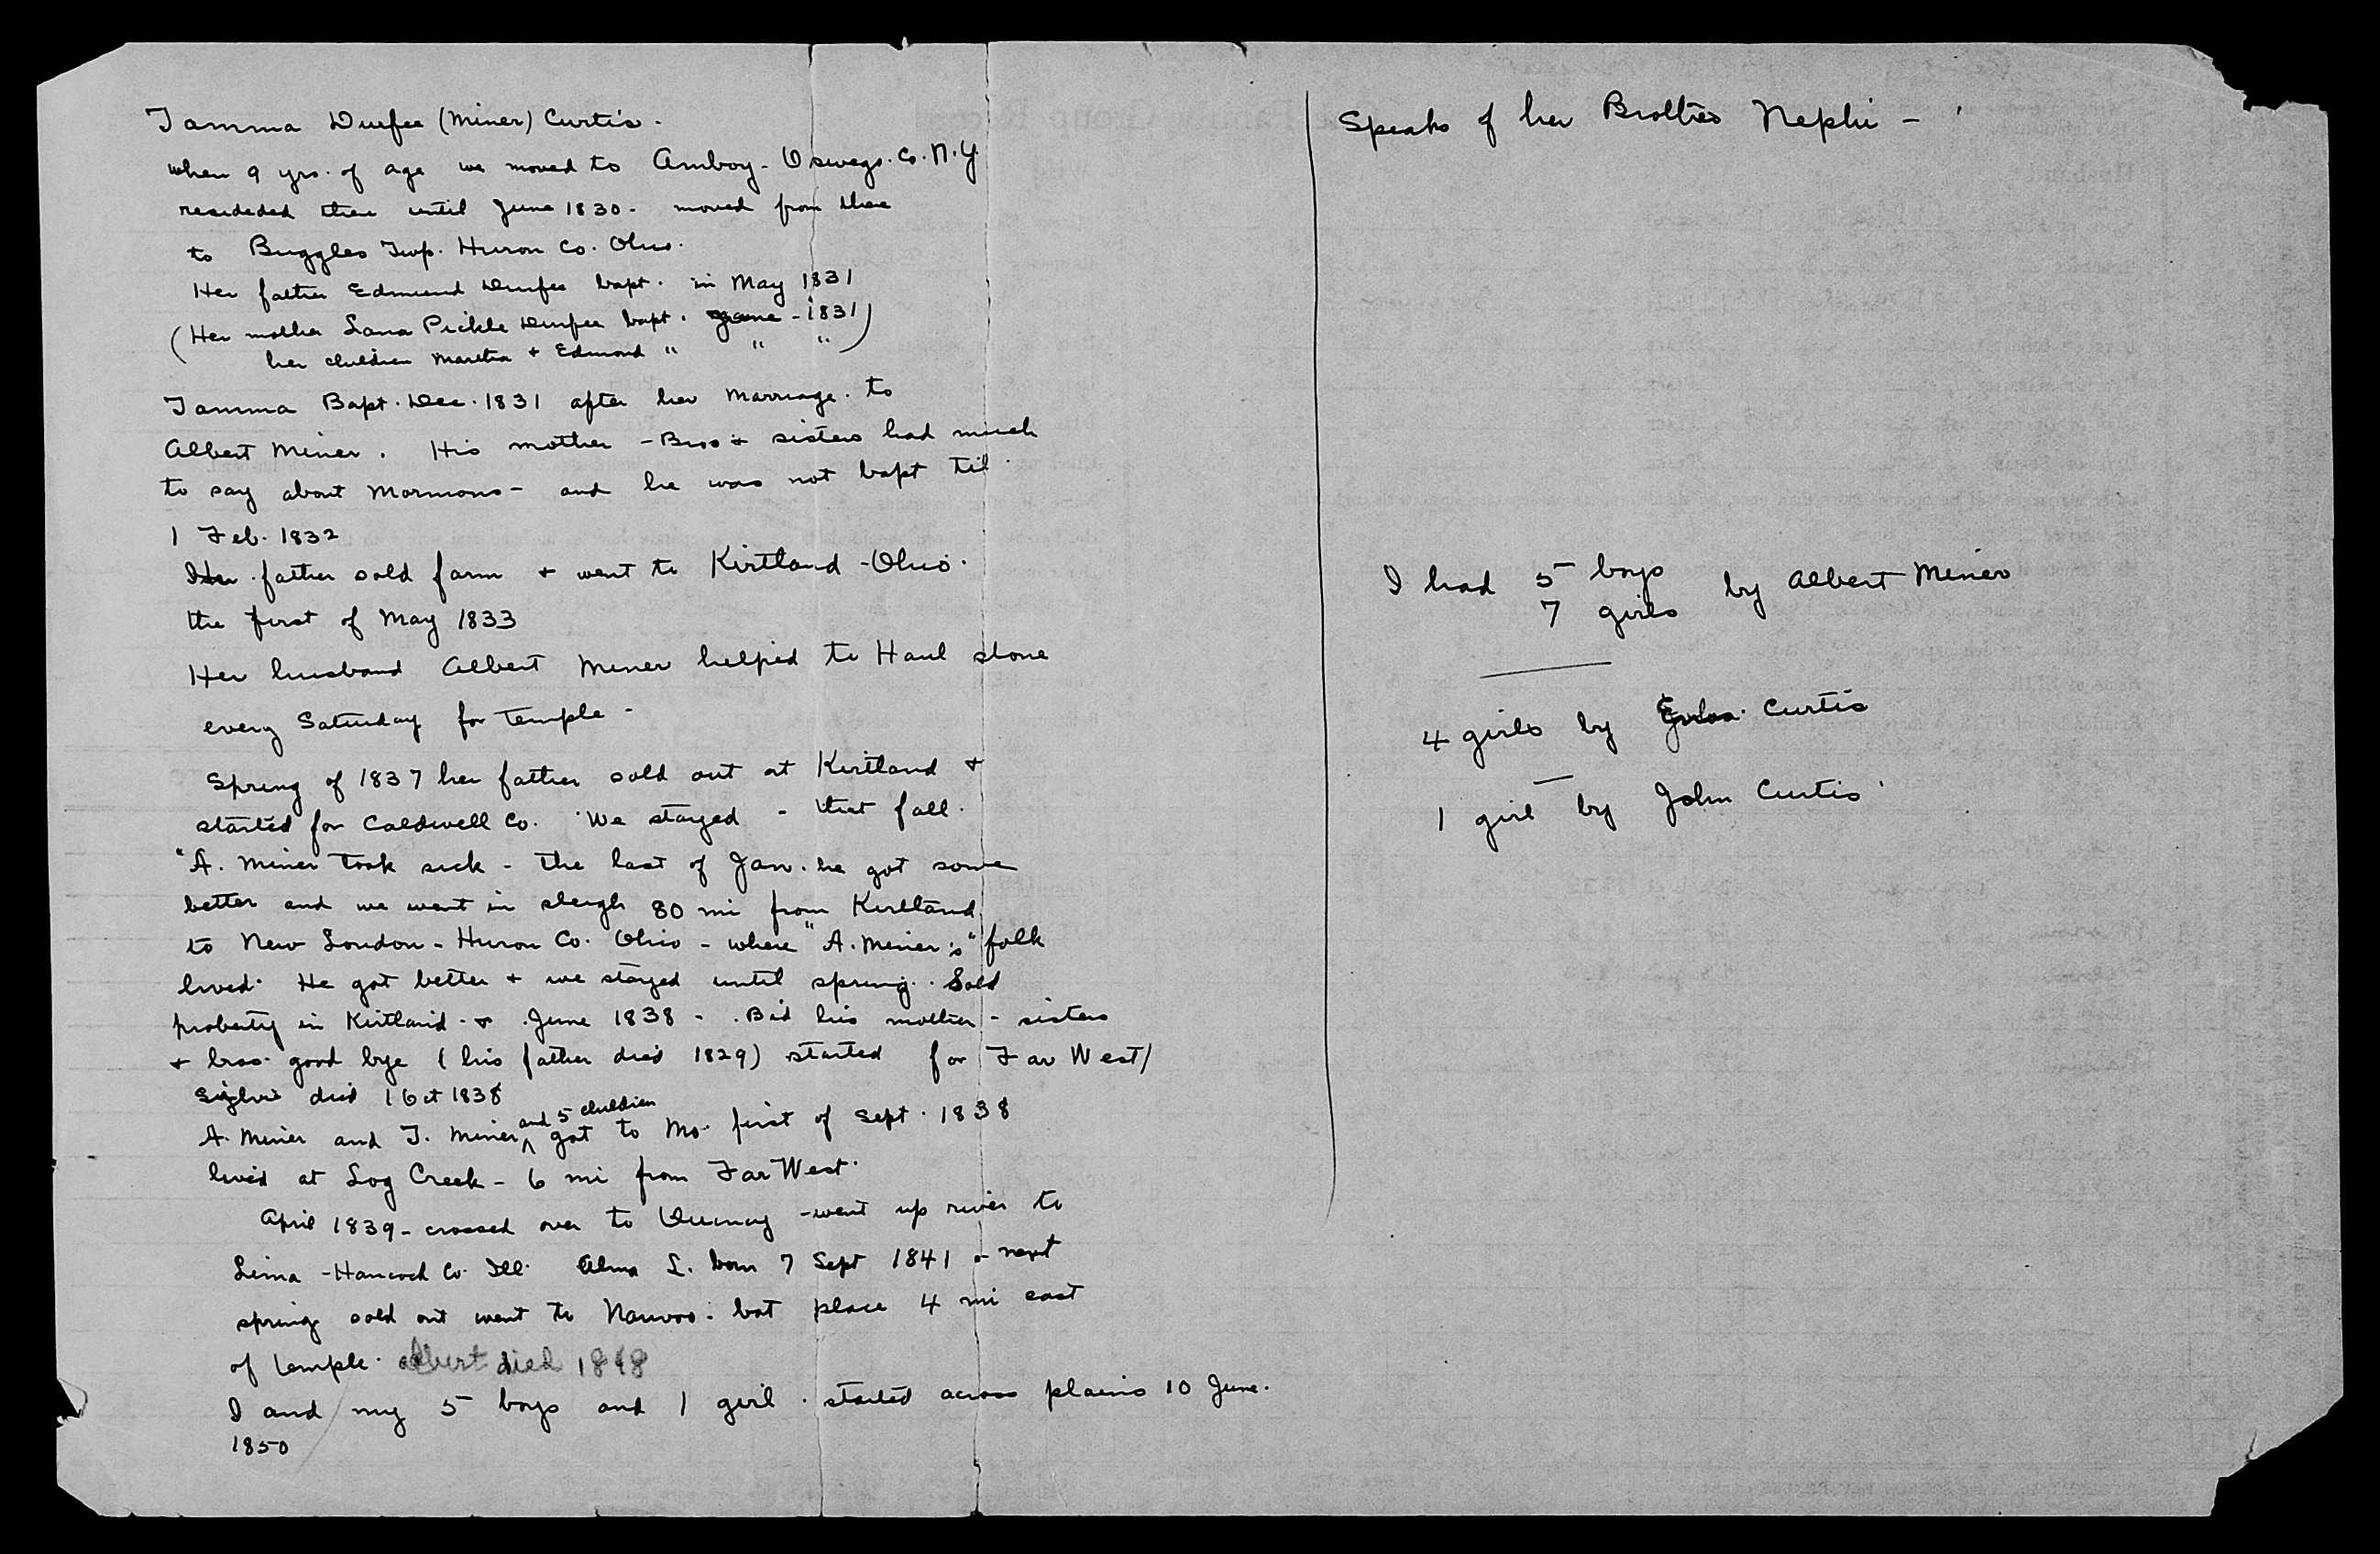 Tamma Durfee (Miner) Curtis -
when 9 yrs. of age we moved to Amboy - Oswego. Co. N.Y.
resideded there until June 1830 - moved from there
to Buggles Twp. Huron Co. Ohio.
Her father Edmund Durfee bapt. in May 1831
(Her mother Lana Pickle Durfee bapt. June - 1831)
her children Martha + Edmond " " "
Tamma Bapt. Dec. 1831 after her marriage. to
Albert Miner. His mother - Bros + sisters had much
to say about Mormons - and he was not bapt til
1 Feb. 1832
Her father sold farm + went to Kirtland - Ohio.
the first of May 1833
Her husband Albert Miner helped to Haul stone
every Saturday for Temple -
Spring of 1837 her father sold out at Kirtland +
started for Caldwell Co. We stayed - that fall.
"A. Miner took sick - the last of Jan. he got some
better and we went in sleigh 80 mi from Kirtland
to New London - Huron Co. Ohio - where "A. Miner's" folk
lived. He got better + we stayed until spring. Sold
proberty in Kirtland - + June 1838 - Bid his mother - sisters
+ bros. good bye (his father died 1829) started for Far West/
died 1 Oct 1838
A. Miner and T. Miner and 5 children got to Mo. first of Sept. 1838
lived at Log Creek - 6 mi from Far West.
April 1839 - crossed over to Quincy - went up river to
Lima - Hancock Co. Ill. Alma L. born 7 Sept 1841 + next
spring sold out went to Nauvoo. bot place 4 mi east
of temple. Albert died 1848
I and my 5 boys and 1 girl. started across plains 10 June.
1850
Speaks of her Brother Nephi -
I had 5 boys
7 girls by Albert Miner
4 girls by Enos Curtis
1 girl by John Curtis